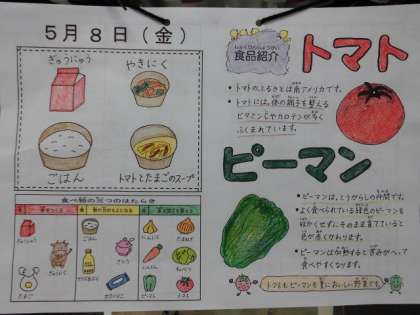 5月8日(金)
ぎゅうにゅう
やきにく
ごはん
トマトとたまごのスープ
食べ物の3つのはたらき
ぎゅうにゅう
ごはん
にんにく
たまねぎ
ぎゅうにく
さとう
にんじん
キャベツ
たまご
あぶら
ピーマン
トマト
食品紹介
トマト
・トマトのふるさとは南アメリカです。
・トマトには、体の調子を整える
ビタミンCやカロテンが多く
ふくまれています。
ピーマン
・ピーマンは、とうがらしの仲間です。
・よく食べられている緑色のピーマンを
収かくせずに、そのまま育てていると
色が赤くかわります。
・ピーマンは加熱すると苦みがへって
食べやすくなります。
トマトもピーマンも夏においしい野菜です